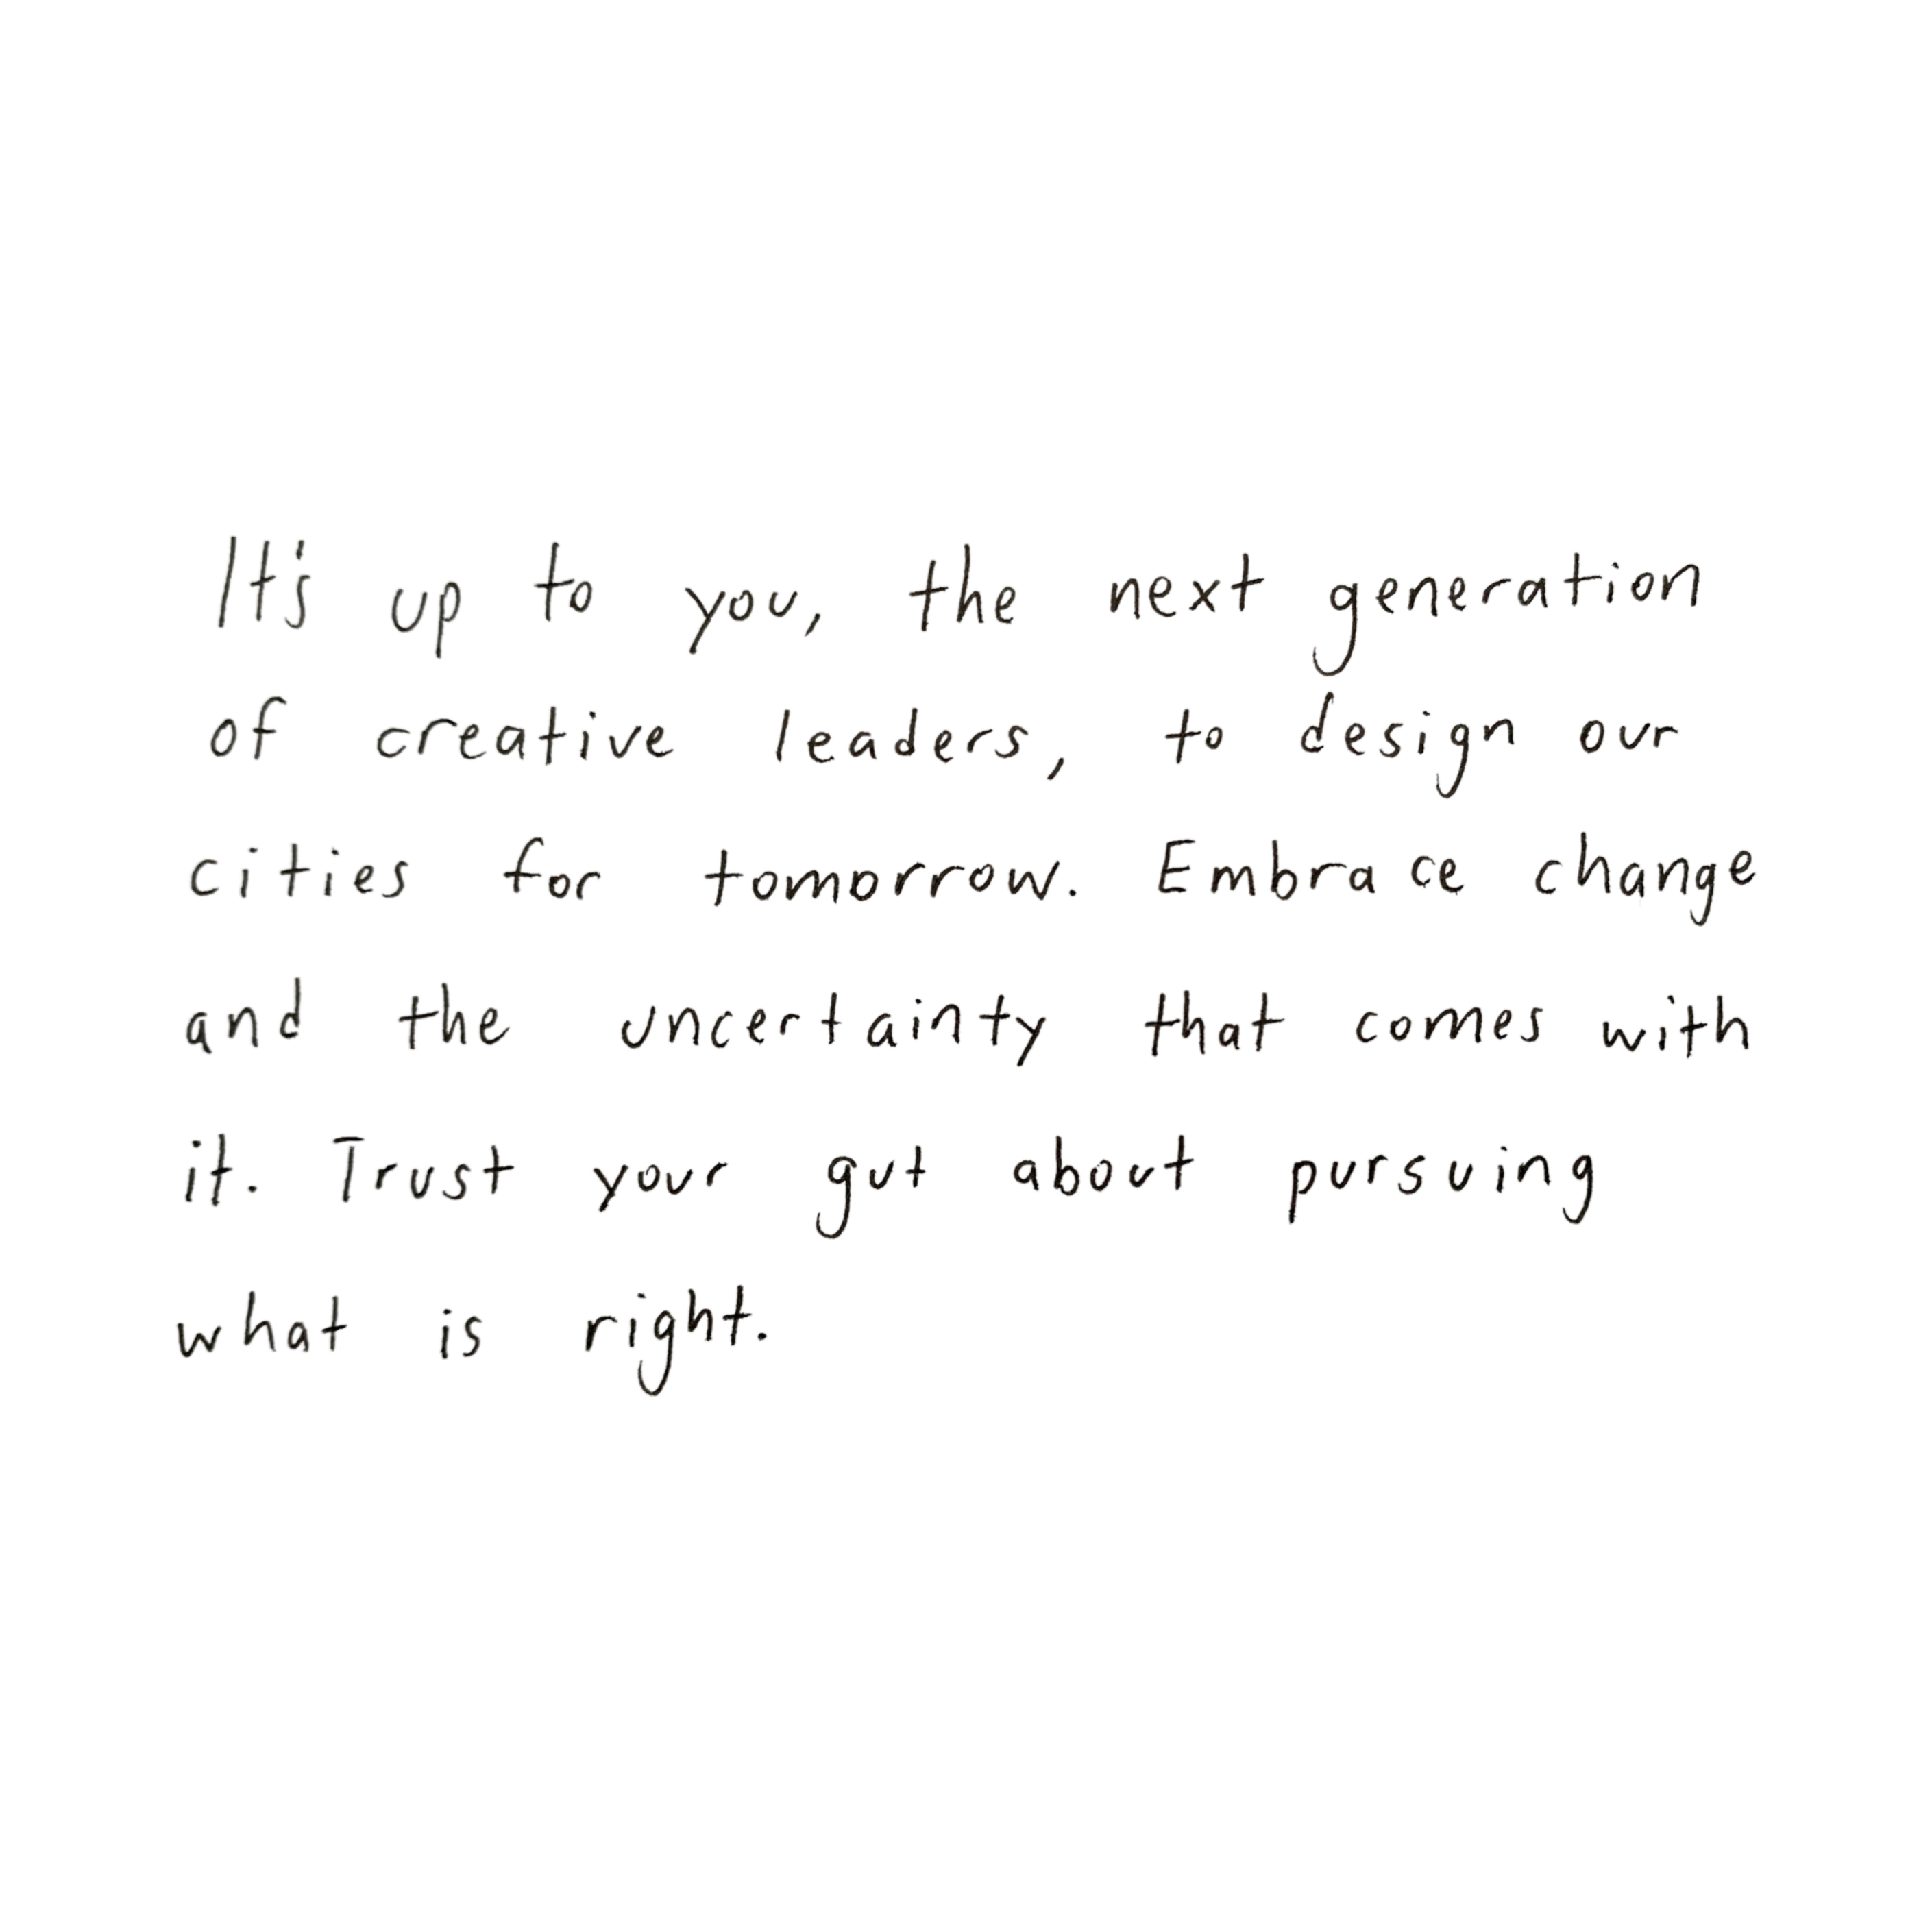 It's up to you, the next generation
of creative leaders, to design our
cities for tomorrow. Embrace change
and the uncertainty that comes with
it. Trust your gut about pursuing
what is right.